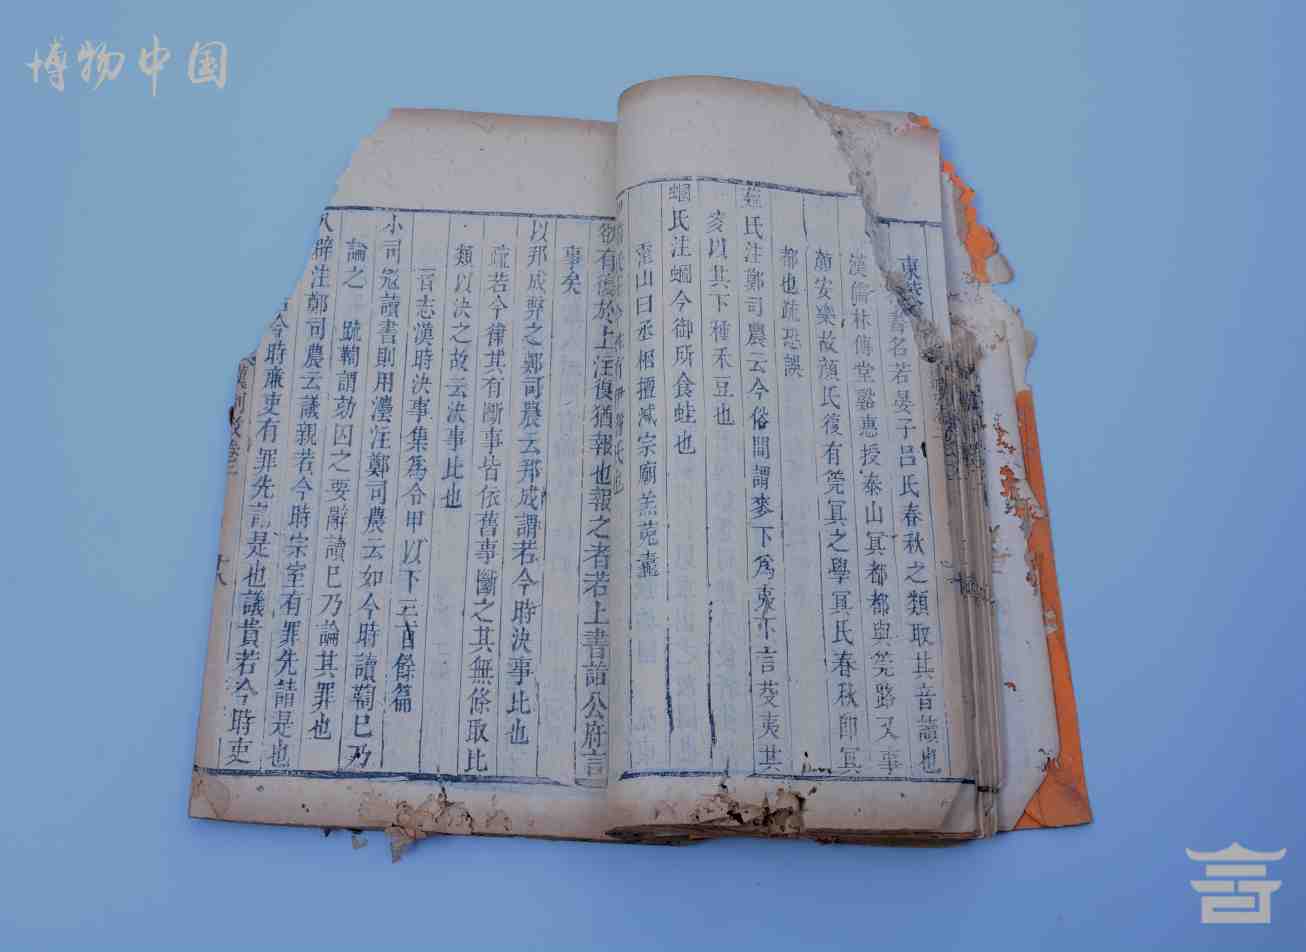 博物中国
東 書名若晏子呂氏春秋之類取其音讀也
漢儒林傳堂谿惠授泰山冥都都與筦路又事
顏安樂故顏氏復有筦冥之學冥氏春秋即冥
都也疏恐誤
薙氏注鄭司農云今俗間謂麥下爲夷下言芟夷其
麥以其下種禾豆也
蟈氏注蟈今御所食蛙也
霍山曰丞相擅减宗廟羔菟鼃
欲有復於上注復猶報也報之者若上書詣公府言
事矣
以邦成弊之鄭司農云邦成謂若今時決事比也
疏若今律其有斷事皆依舊事斷之其無條取比
類以決之故云決事比也
晉志漢時決事集爲令甲以下三百餘篇
小司寇讀書則用灋注鄭司農云如今時讀鞫已乃
論之 疏鞫謂劾囚之要辭讀已乃論其罪也
八辟注鄭司農云議親若今時宗室有罪先請是也
今時廉吏有罪先請是也議貴若今時吏
漢制攷卷二